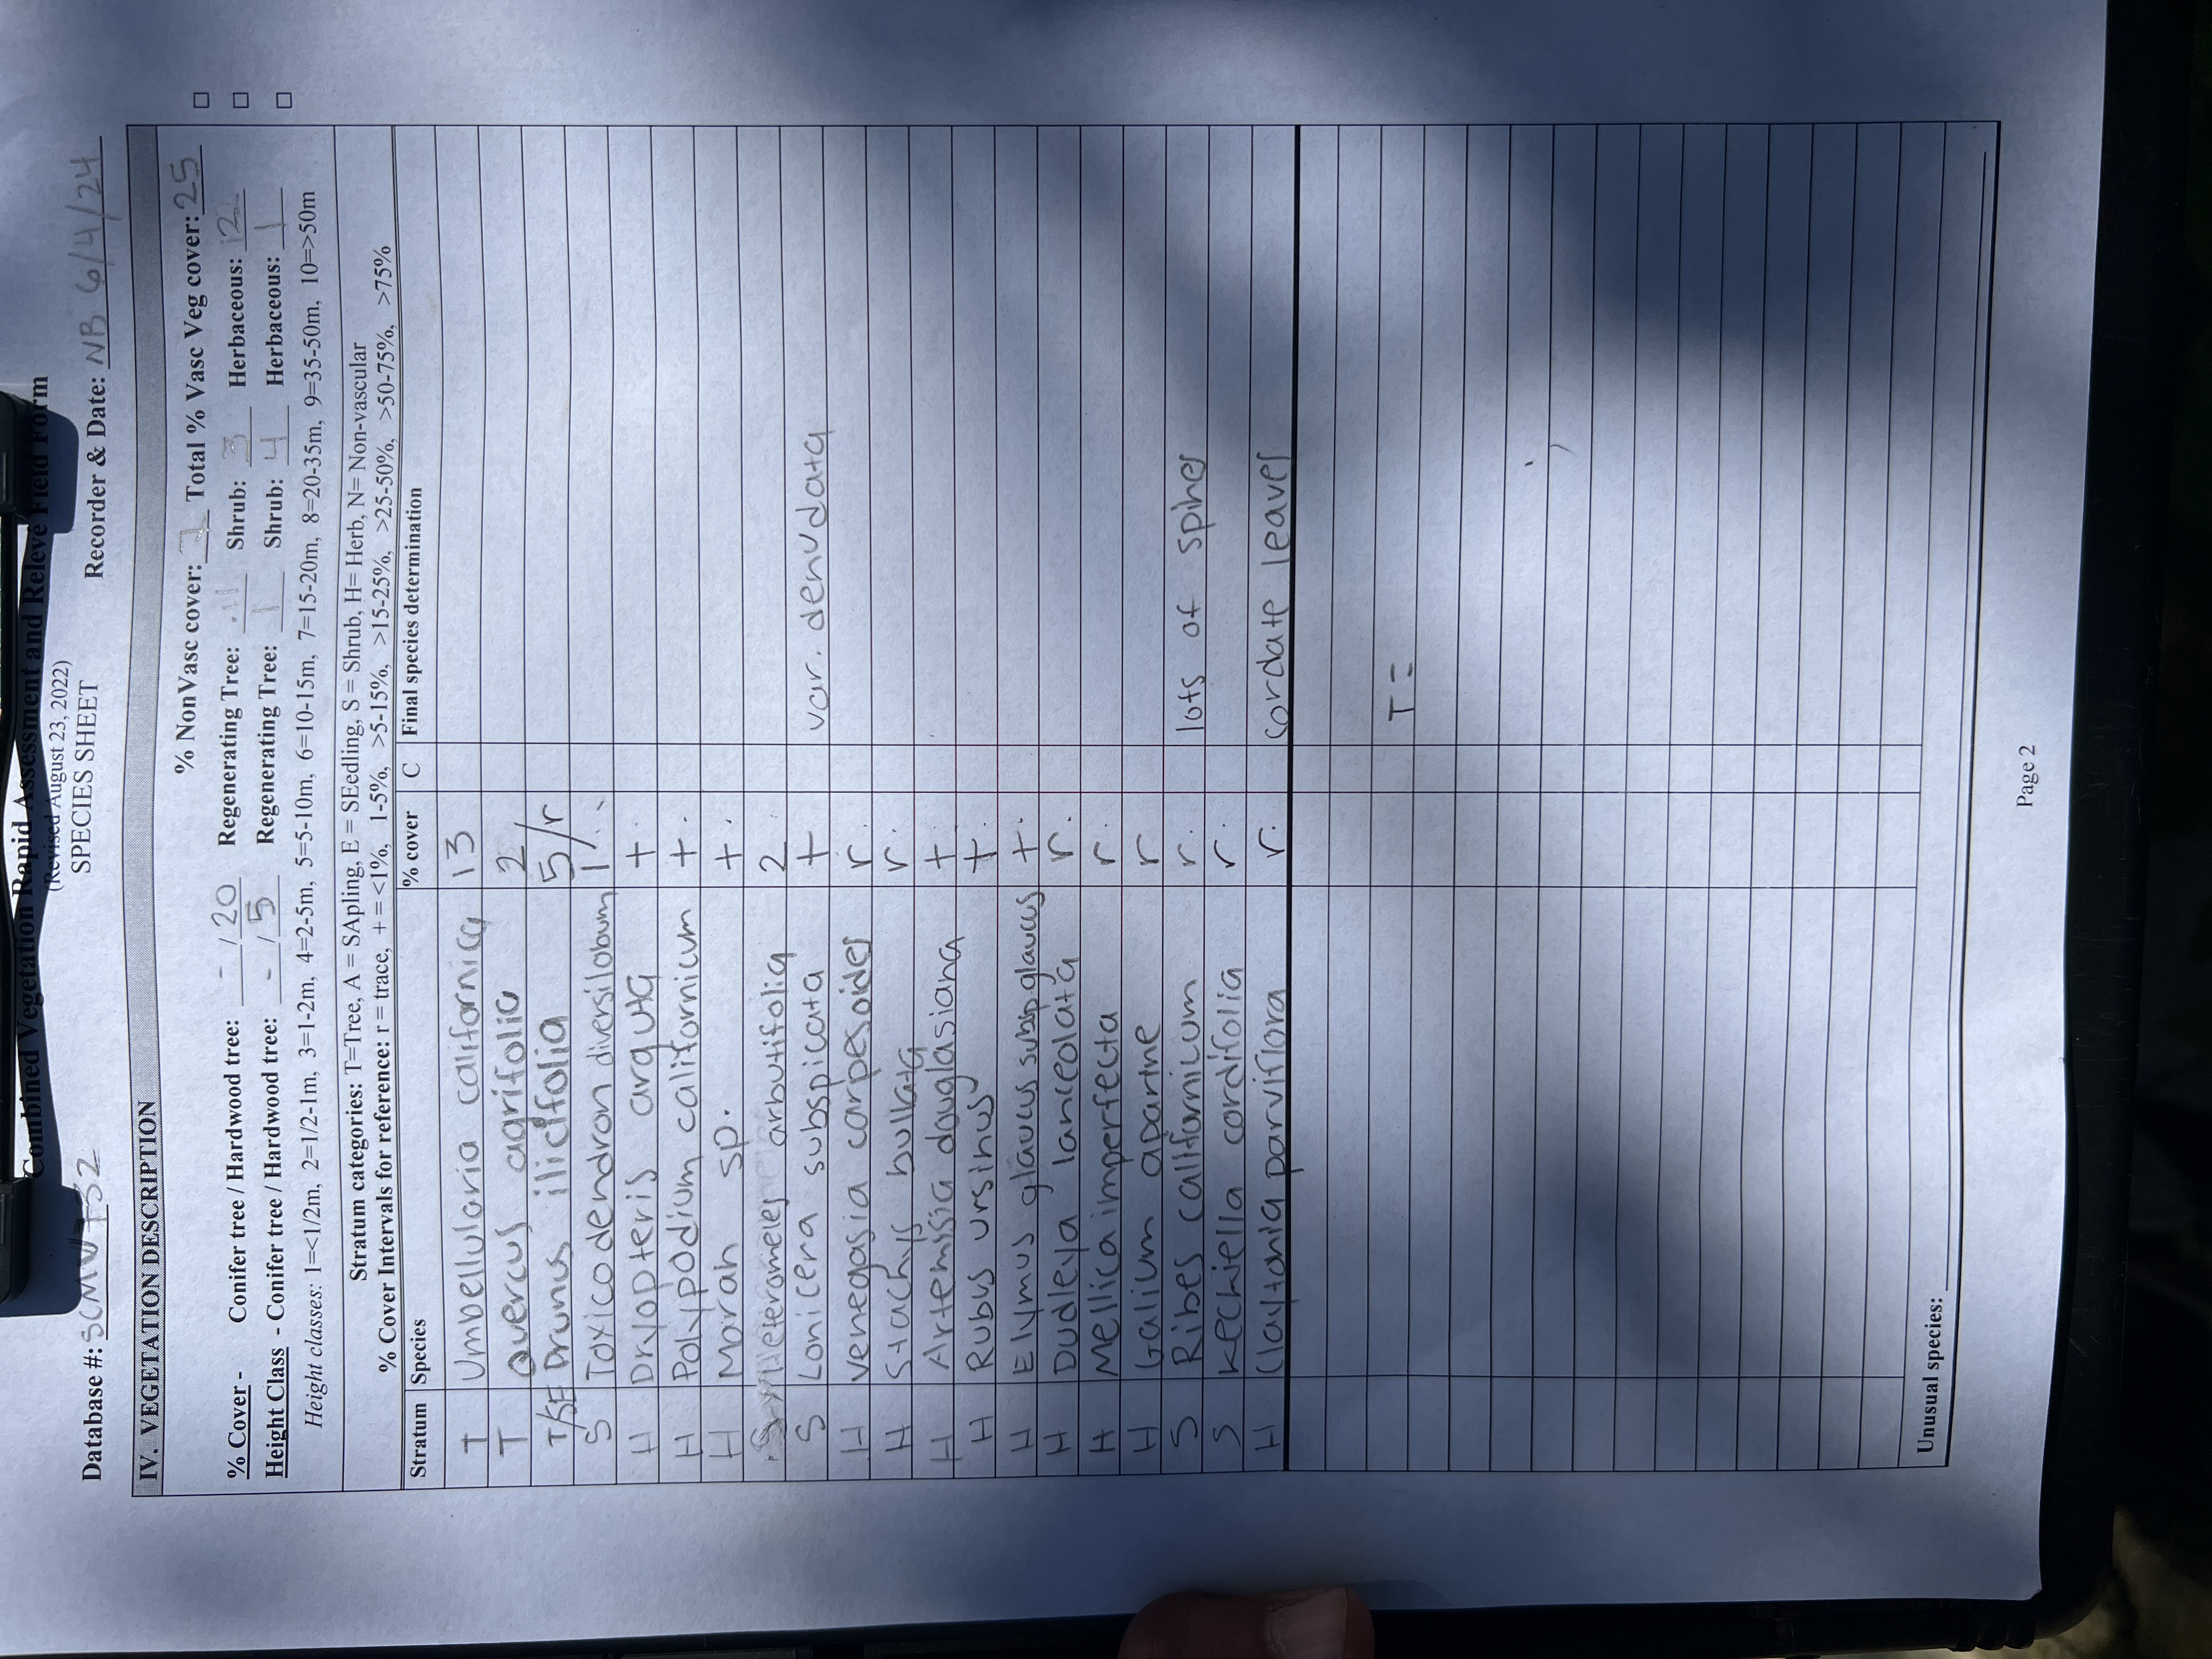 Combined Vegetation Rapid Assessment and Relevé Field Form
(Revised August 23, 2022)
SPECIES SHEET
Database #: Recorder & Date: NB 6/4/24
IV. VEGETATION DESCRIPTION
% NonVasc cover: Total % Vasc Veg cover: 25
% Cover - Conifer tree / Hardwood tree: - / 20 Regenerating Tree: Shrub: 3 Herbaceous: 12
Height Class - Conifer tree / Hardwood tree: - / 5 Regenerating Tree: 1 Shrub: 4 Herbaceous: 1
Height classes: 1=<1/2m, 2=1/2-1m, 3=1-2m, 4=2-5m, 5=5-10m, 6=10-15m, 7=15-20m, 8=20-35m, 9=35-50m, 10=>50m
Stratum categories: T=Tree, A = SApling, E = SEedling, S = Shrub, H= Herb, N= Non-vascular
% Cover Intervals for reference: r = trace, + = <1%, 1-5%, >5-15%, >15-25%, >25-50%, >50-75%, >75%
Stratum Species % cover C Final species determination
T Umbellularia californica 13
T Quercus agrifolia 2
T/SE Prunus ilicifolia 5/r
S Toxicodendron diversilobum 1
H Dryopteris arguta +
H Polypodium californicum +
H Moran sp. +
Heteromeles arbutifolia 2
S Lonicera subspicata + var. denudata
H Venegasia carpesoides r
H Stachys bullata r
H Artemisia douglasiana +
H Rubus ursinus +
H Elymus glaucus subsp. glaucus +
H Dudleya lanceolata r
H Mellica imperfecta r
H Galium aparine r
S Ribes californicum r lots of spines
S Keckiella cordifolia r
H Claytonia parviflora r cordate leaves
T =
Unusual species:
Page 2